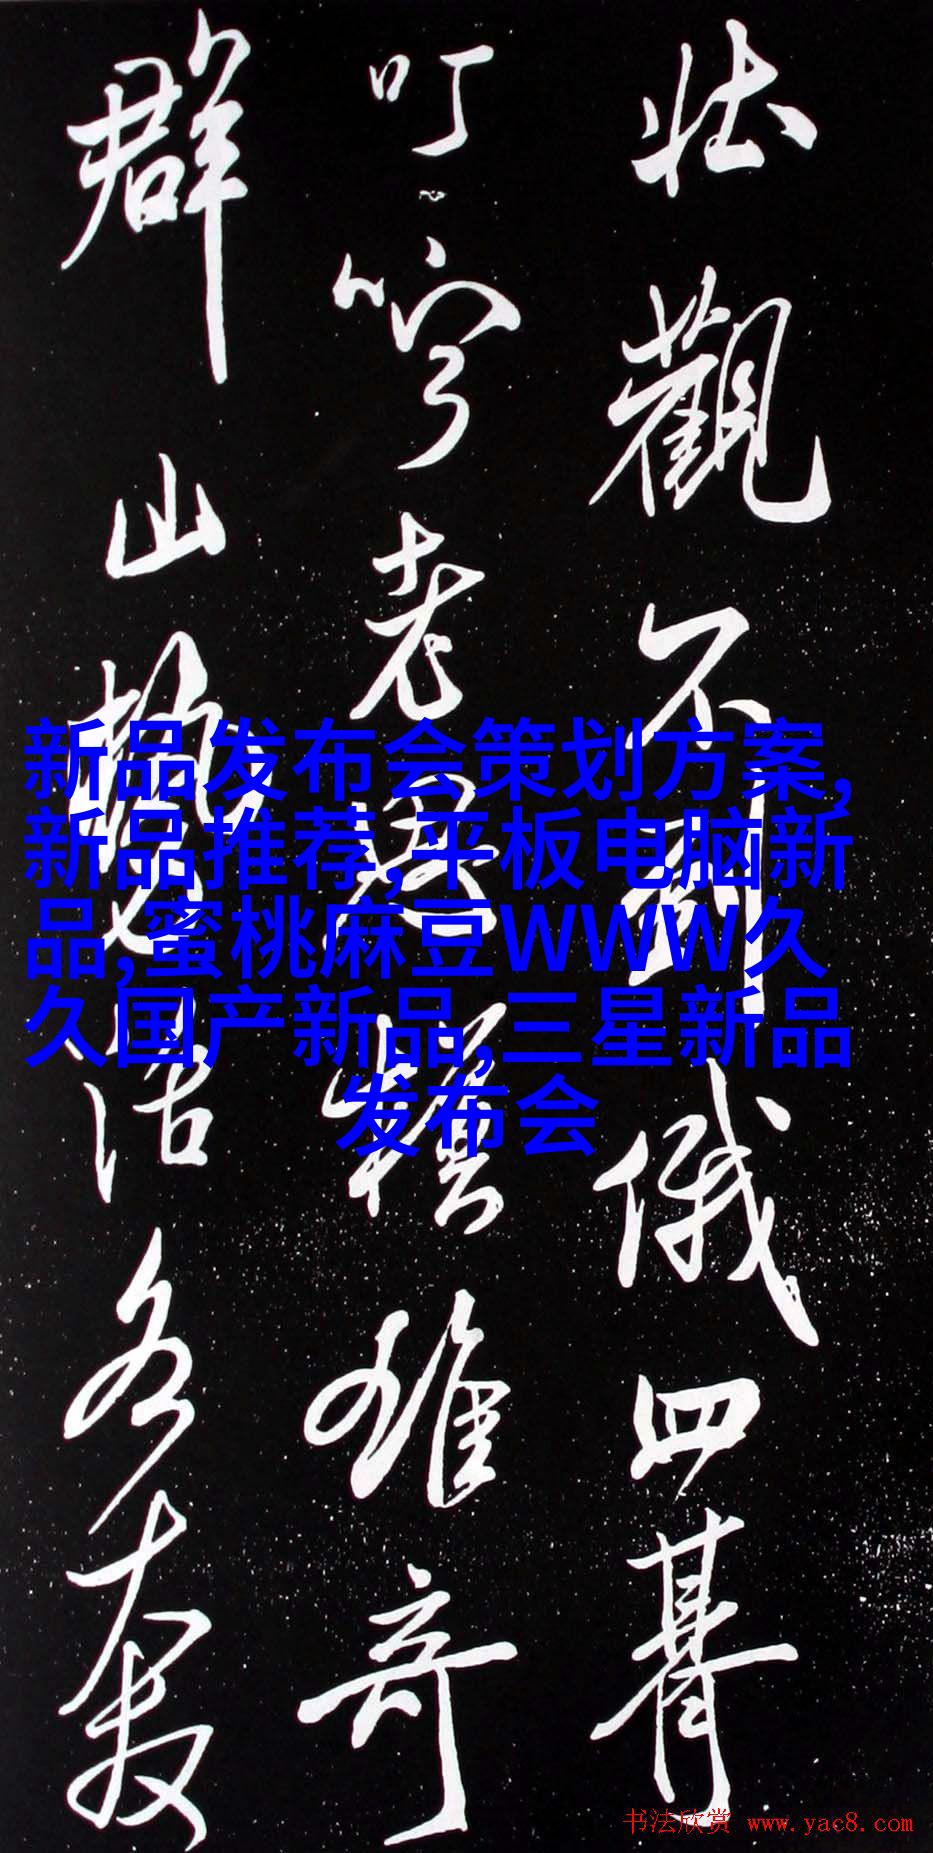 壯觀不到俄四朞
叮嚀老墨雄奇
群山活各
新品发布会策划方案,
新品推荐,平板电脑新
品,蜜桃麻豆WWW久
久国产新品,三星新品
发布会
书法欣赏 www.yac8.com